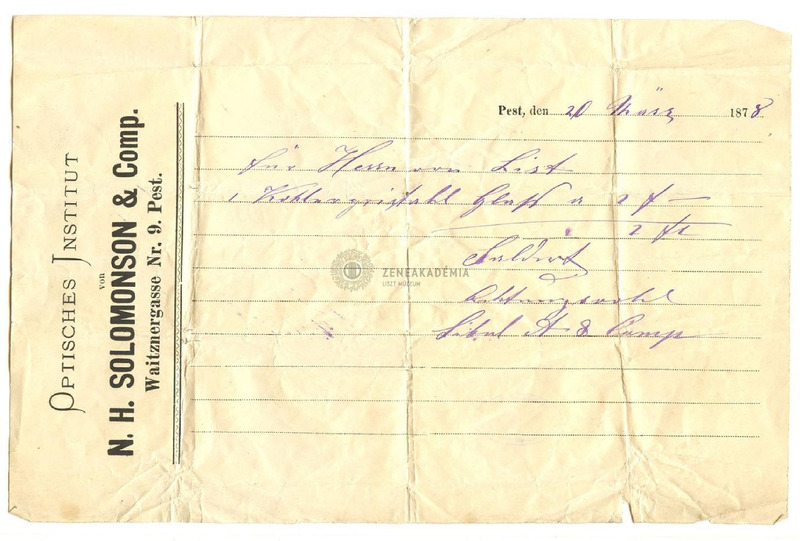 OPTISCHES INSTITUT
von
N. H. SOLOMONSON & Comp.
Waitznergasse Nr. 9. Pest.
Pest, den 20 März 1878
für Herrn von List
1 Glaß a 2 f —
2 f
Saldirt
Achtungsvohl
A & Comp
ZENEAKADÉMIA
LISZT MÚZEUM